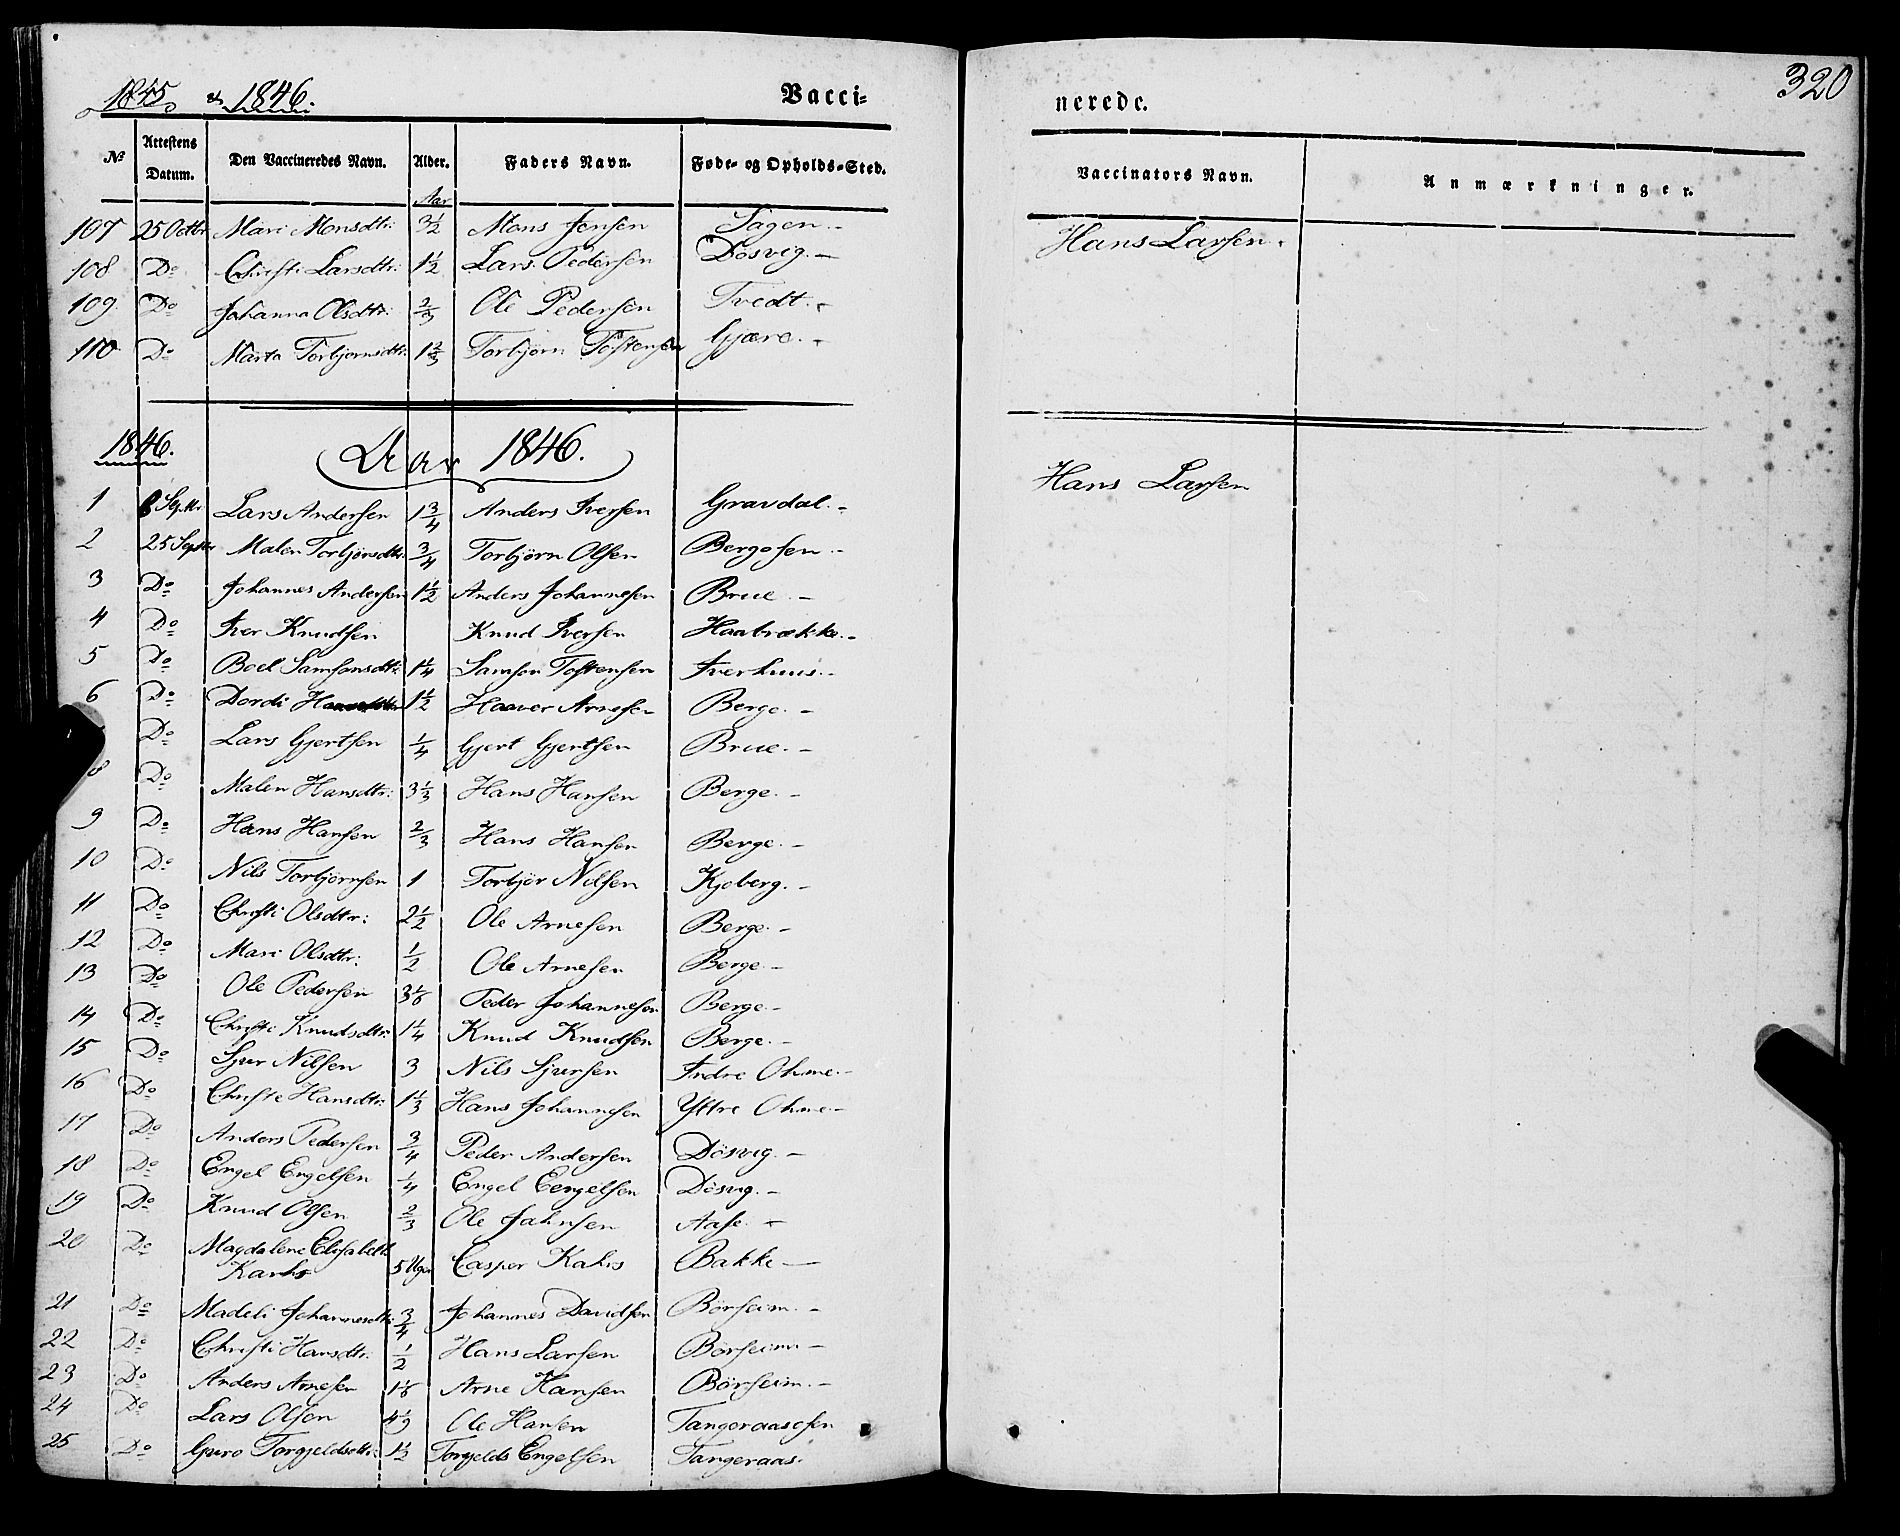 1845 & 1846. Vacci=
nerede. 320
No Attestens Datum. Den Vaccineredes Navn. Alder. Faders Navn. Føde- og Opholds-Sted. Vaccinators Navn. Anmærkninger.
Aar
107 25 Octbr Mari Monsdtr: 3½ Mons Jensen Sagen.- Hans Larsen.
108 Do Christi Larsdtr: 1½ Lars Pedersen Dösvig.-
109. Do Johanna Olsdtr: 2/3 Ole Pedersen Tvedt.-
110 Do Marta Torbjornsdtr: 1 2/3 Torbjörn Tostensen Gjære.-
1846. Aar 1846.
1 8 Septbr Lars Andersen 1¾ Anders Iversen Gravdal.- Hans Larsen
2 25 Septbr Malen Torbjörnsdtr: ¾ Torbjörn Olsen Bergosen.-
3 Do Johannes Andersen 1½ Anders Johannesen Brue.-
4 Do Iver Knudsen Knud Iversen Haabrække.-
5 Do Boel Samsonsdtr: 1¼ Samson Tostensen Iverhuus.-
6 Do Dordi 1½ Haaver Arnesen Berge.-
Do Lars Gjertsen ¼ Gjert Gjertsen Brue.-
8 Do Malen Hansdtr: 3 1/3 Hans Hansen Berge.-
9 Do Hans Hansen 2/3 Hans Hansen Berge.-
10 Do Nils Torbjörnsen 1 Torbjör Nilsen Kjoberg.-
11 Do Christi Olsdtr: 2½ Ole Arnesen Berge.-
12 Do Mari Olsdtr: ½ Ole Arnesen Berge.-
13 Do Ole Pedersen 3 1/6 Peder Johannesen Berge.-
14 Do Christi Knudsdtr: 1¼ Knud Knudsen Berge.-
15 Do Sjur Nilsen 3 Nils Sjursen Indre Ohme.-
16 Do Christe Hansdtr: 1 1/3 Hans Johannesen Yttre Ohme-
17 Do Anders Pedersen ¾ Peder Andersen Dösvig.-
18 Do Engel Engelsen ¼ Engel Eengelsen Dösvig.-
19 Do Knud Olsen 2/3 Ole Jahnsen Aase.-
20 Do Magdalene Elisabeth 5 Uger Casper Kahrs Bakke-
Karhs
21 Do Madeli Johannesdtr: ¾ Johannes Davidsen Börseim.-
22 Do Christi Hansdtr: ½ Hans Larsen Börseim-
23 Do Anders Arnesen 1 1/6 Arne Hansen Börseim.-
24 Do Lars Olsen 4 1/3 Ole Hansen Tangeraasesen
25 Do Guro Torgjeldsdtr: 1½ Torgjelds Engelsen Tangeraas.